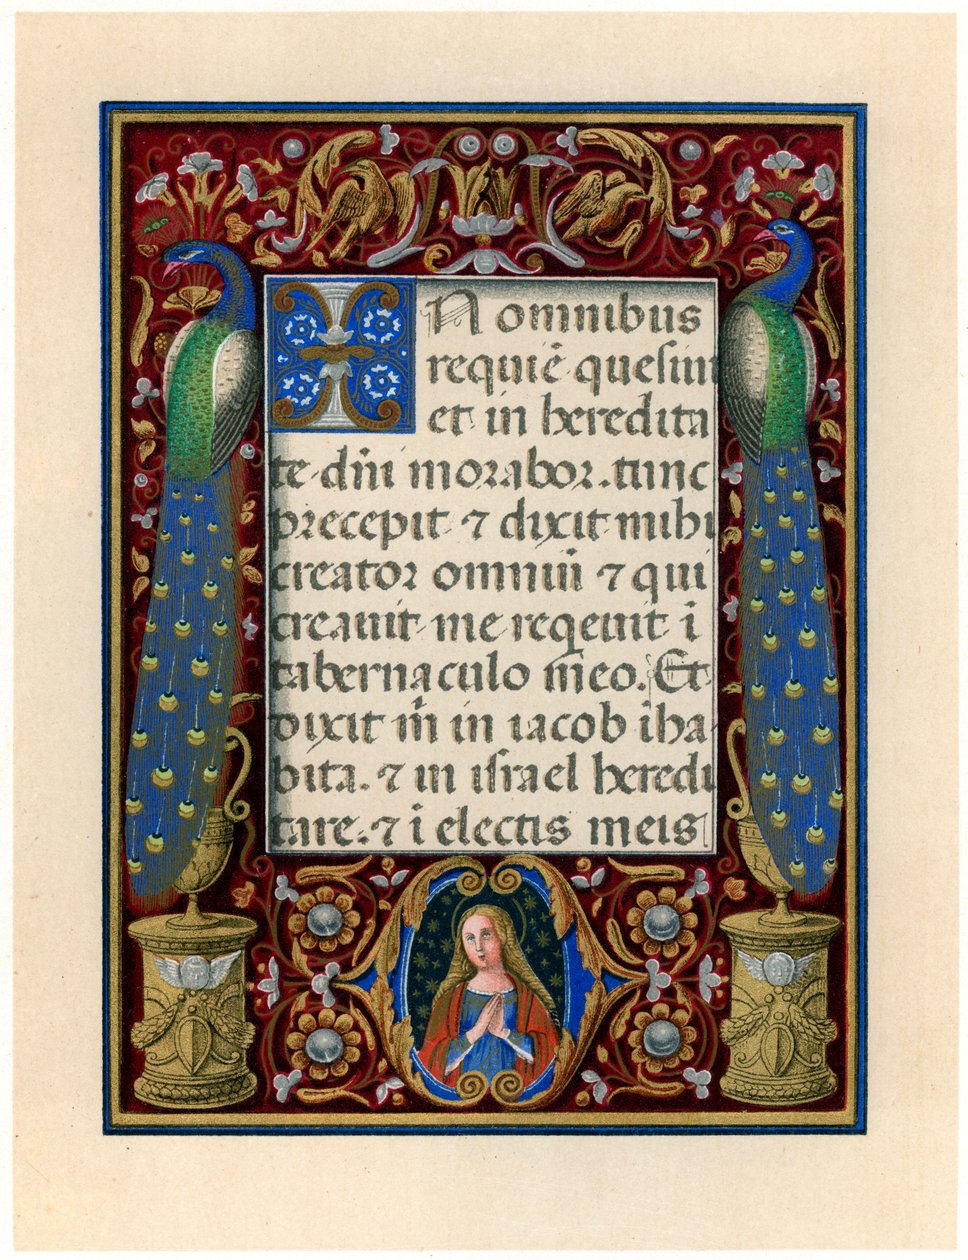 IN omnibus
requiē quesiui
et in heredita
te dñi morabor. tunc
precepit ⁊ dixit mihi
creator omniū ⁊ qui
creauit me requeuit ī
tabernaculo meo. Et
dixit m̄ in iacob iha
bita. ⁊ in israel heredi
tare. ⁊ ī electis meis